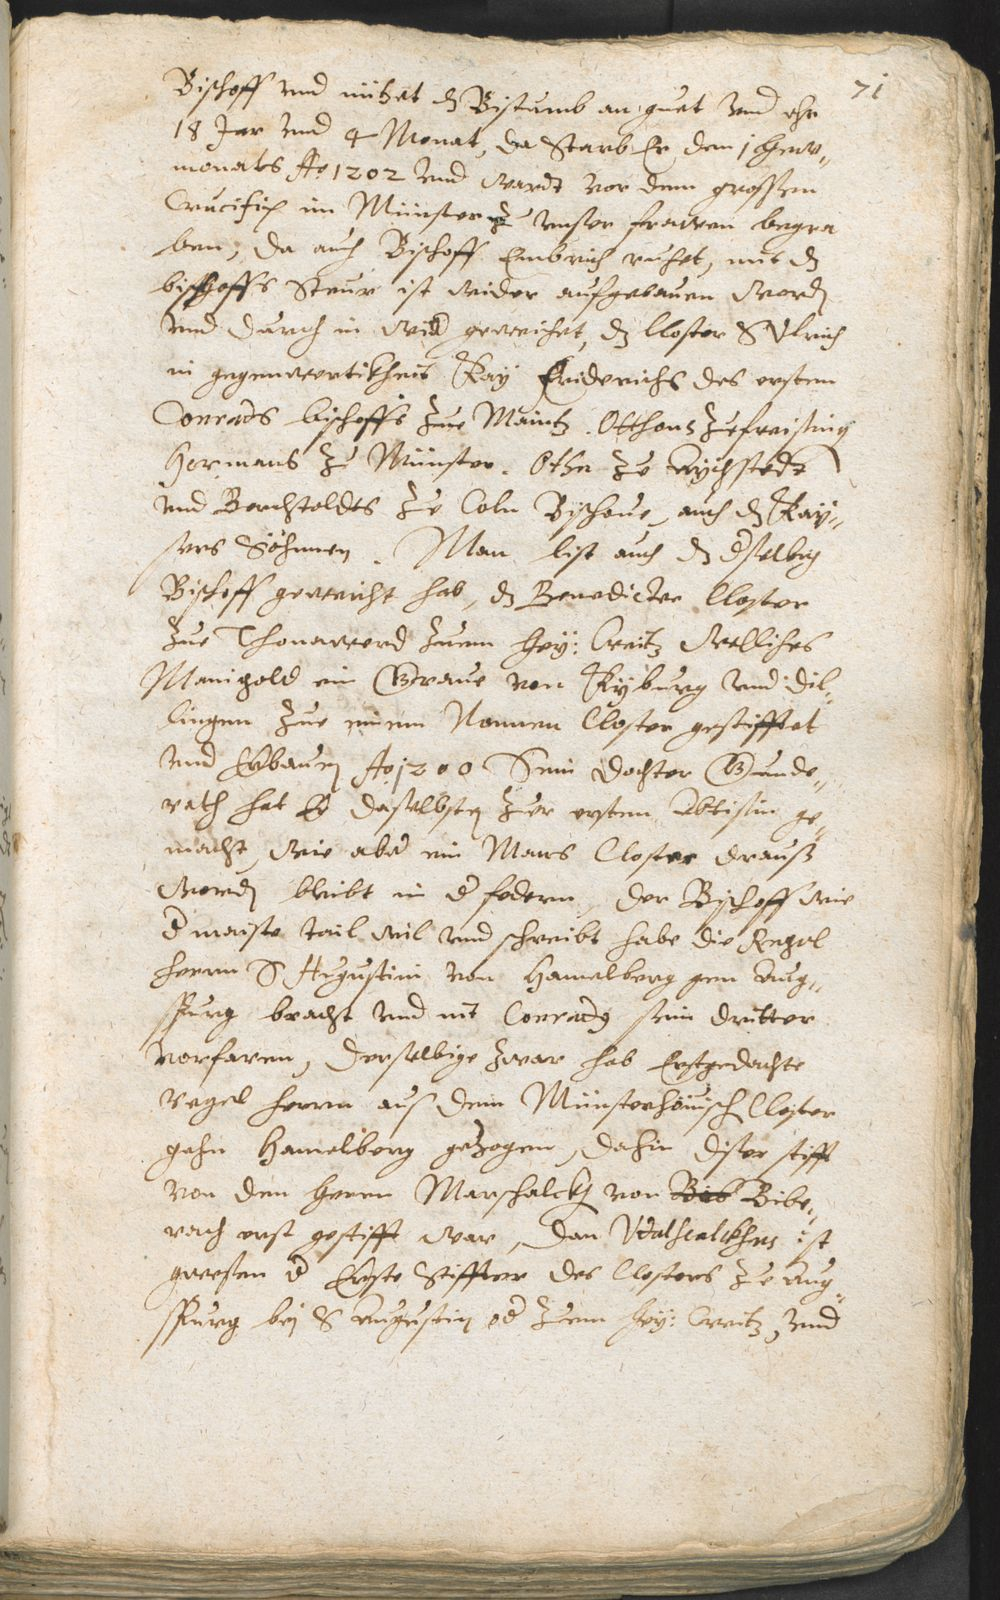 71
Bischoff vnd nützet dz Bistumb an guet vnd ehr
18 Jar vnd 4 Monat, da Starb Er, den j Hew„
monats Ao 1202 vnd wardt vor dem grossen
Crucifix im Münster Z vnser frawen begra
ben, da auch Bischoff Embrich ruhet, mit dz
bischoffs Steur ist wider aufgebauen word
vnd durch in wid geweichet, dz Closter S Vlrich
in gegenwertikheit Kay Friderichs des ersten
Conrads bischoffs Zue Maintz. Otthons Zuefreising
Hermans Zu Münster. Otho Zu Aychstedt
vnd Berchtoldts Zu Coln Bischoue, auch dz Kay„
sers Söhnen. Man list auch dz dselbig
Bischoff geweicht hab, dz Benedicter Closter
Zue Thonawerd Zuem hey: Creitz Welliches
Manigold ein Graue von Kyburg vnd Dil„
lingen Zue einem Nonnen Closter gestifftet
vnd Erbauen Ao j200 Sein Dochter Gunde„
rath hat Er daselbsten Zur ersten Abtisin ge„
macht, wie aber ein Mans Closter drauß
Worden bleibt in d federn, der Bischoff wie
d maiste tail wil vnd schreibt habe die Regel
herrn S Augustini von Hamelberg gen Aug„
spurg bracht vnd nit Conrads sein dritter
vorfaren, derselbige zwar hab Erstgedachte
regel herrn aus dem Münsterhöuisch Closter
gehn Hamelberg gezogen, dahin diser stifft
von den herrn Marschalckh von Bibe„
rach erst gestifft war, dan Vdalscalckhus ist
gwesen d Erste Stiffter des Closters Zu Aug„
spurg bei S Augustin od Zum hey: Creitz, vnd